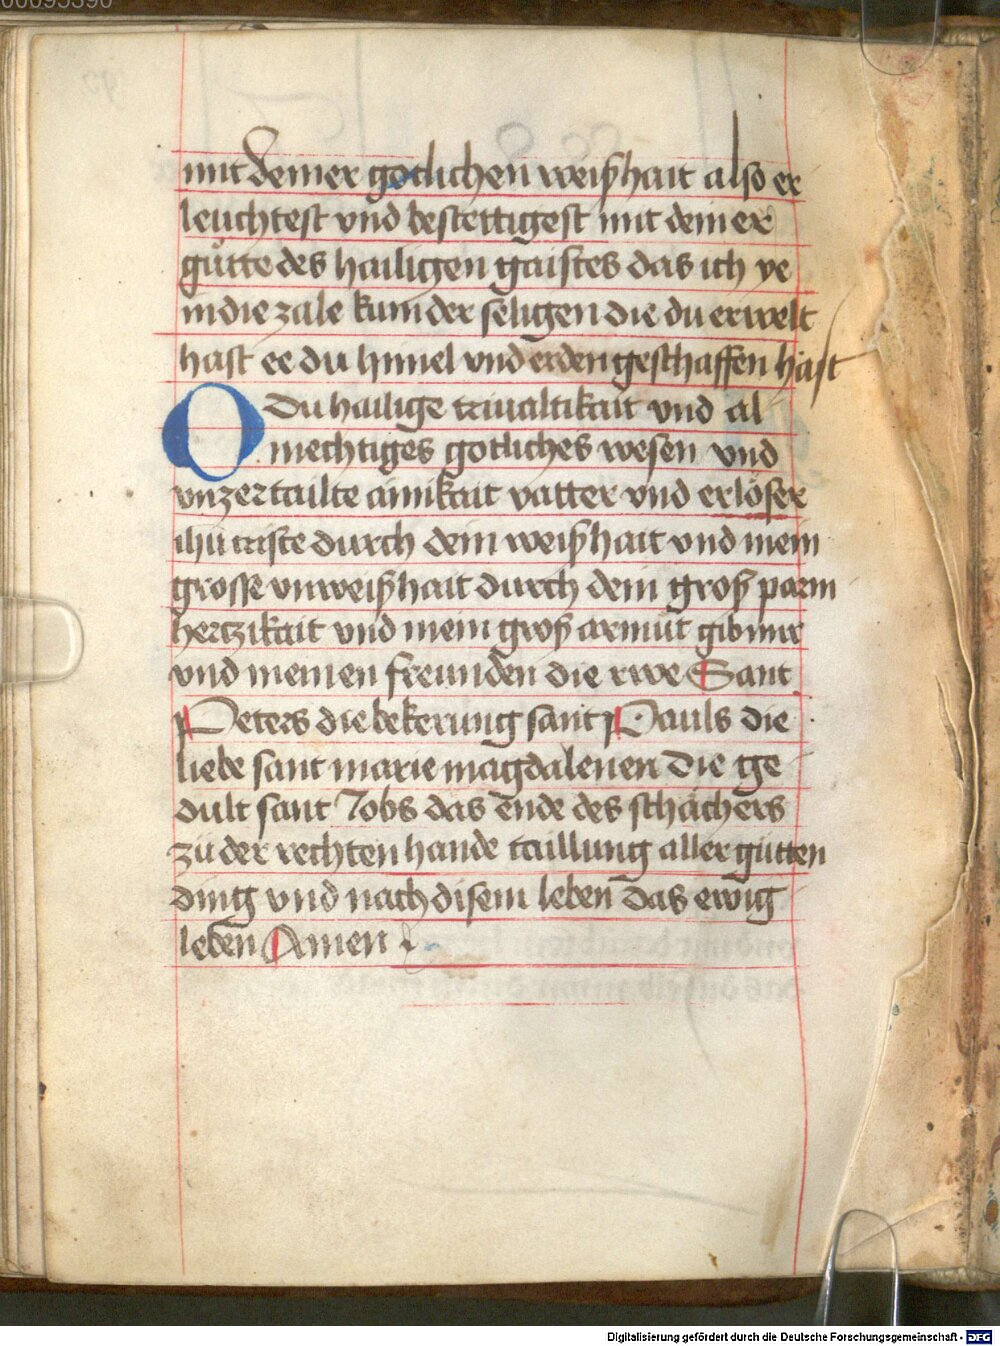 00095390
mit deiner götlichen weißhait also er
leuchtest vnd bestettigest mit deiner
gütte des hailigen gaistes das ich ye
in die zale kum der seligen die du erwelt
hast ee du himel vnd erden geschaffen hast
O du hailige triualtikait vnd al
mechtiges gotliches wesen vnd
vnzertailte ainikait vatter vnd erlöser
ihu criste durch dein weißhait vnd mein
grosse vnweißhait durch dein groß parm
hertzikait vnd mein groß armut gib mir
vnd meinen freunden die rwe Sant
Peters die bekerung sant Pauls die
liebe sant marie magdalenen die ge
dult sant Jobs das ende des schächers
zu der rechten hande taillung aller gutten
ding vnd nach disem leben das ewig
leben Amen
Digitalisierung gefördert durch die Deutsche Forschungsgemeinschaft - DFG